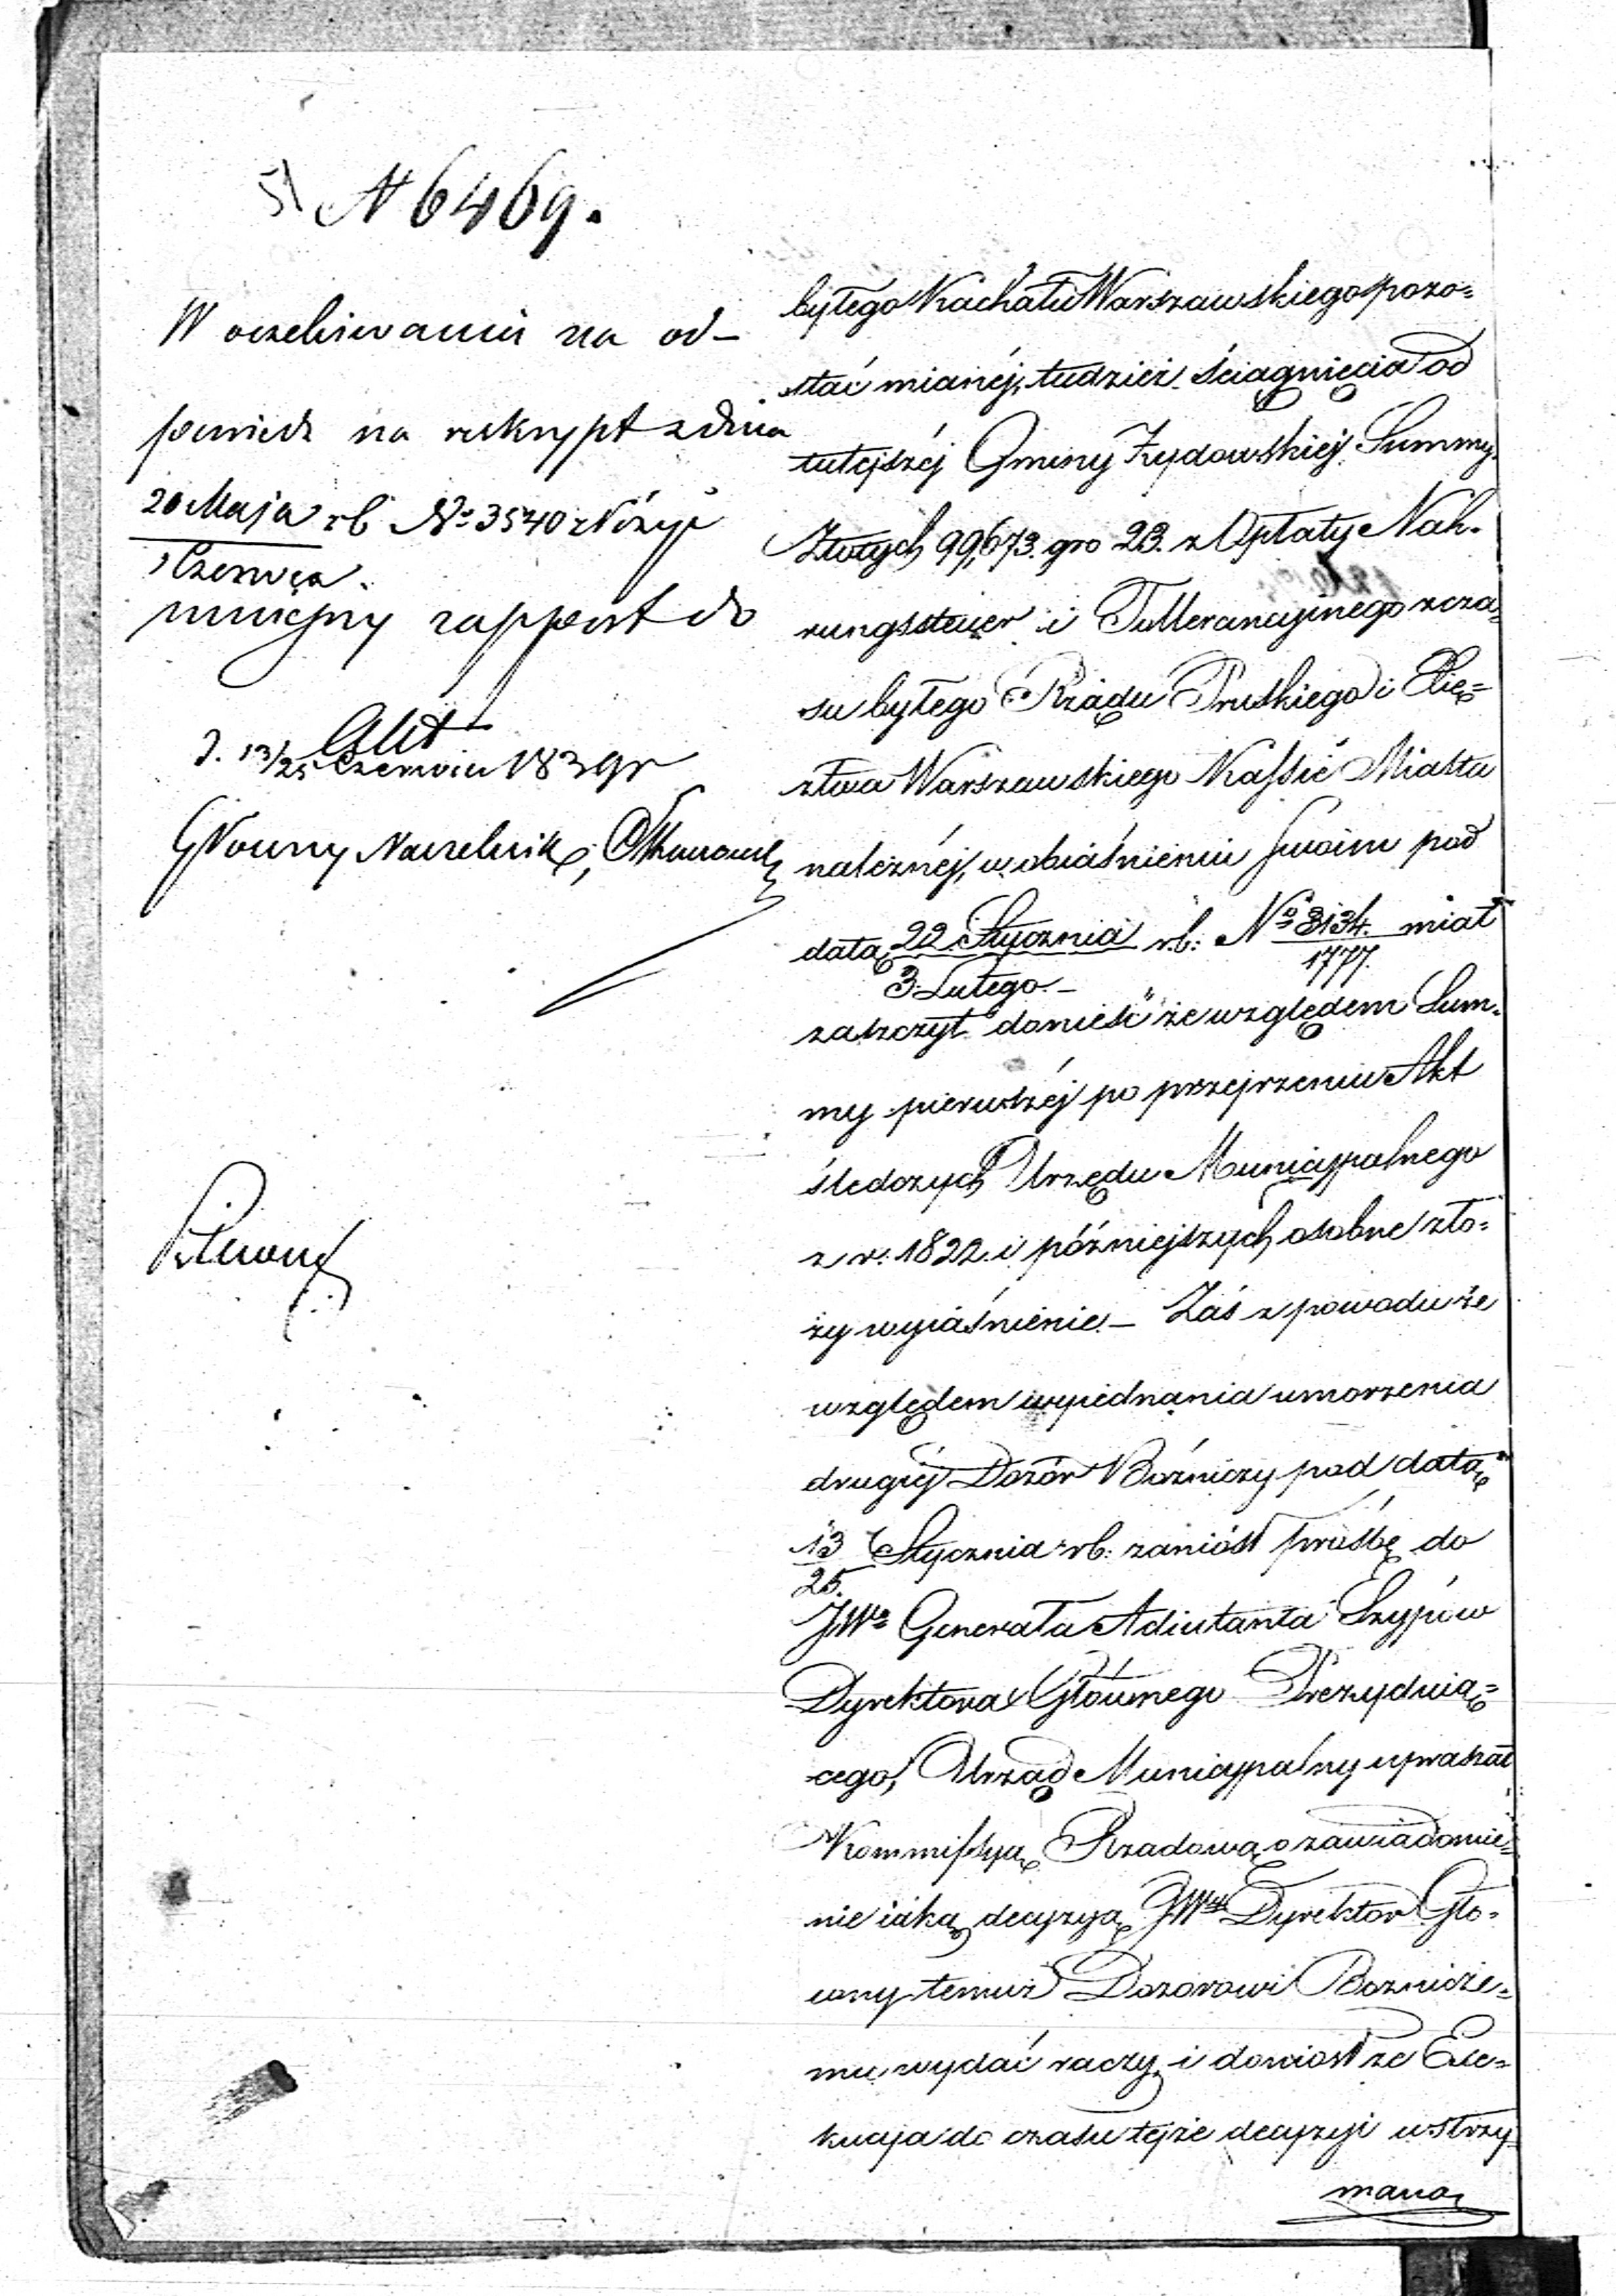 51 N 6469.
W oczekiwaniu na od-
powiedź na reskrypt z dnia
20 Maja rb No 3540 złożyć
1 Czerwca.
niniejszy rapport do
Akt
d. 13/25 Czerwca 1839 r
Główny Naczelnik,
byłego Kachału Warszawskiego pozo=
stać mianéj, tudzież ściągnięcia od
tutejszéj Gminy Żydowskiéj Summy
Złotych 99,673. gro 23. z Opłaty Nah-
rungssteuer i Tollerancyjnego z cza-
su byłego Rządu Pruskiego i Xię=
ztwa Warszawskiego Kassie Miasta
należnéj, w obiaśnieniu swoim pod
datą 22 Stycznia rb: No 3134. miał
3. Lutego.- 1777.
zaszczyt donieść "że względem Sum-
my pierwszéj po przejrzeniu Akt
śledczych Urzędu Municypalnego
z r. 1822 i późniejszych osobne zło=
ży wyiaśnienie.- Zaś z powodu że
względem wyiednania umorzenia
drugiéj Dozór Bóżniczy pod datą
13 Stycznia rb: zaniósł prośbę do
25.
JWo Generała Adiutanta Szypów
Dyrektora Głównego Prezyduią=
cego, Urząd Municypalny upraszał
Kommissyą Rządową o zawiadomie=
nie iaką decyzyą JWny Dyrektor Głó-
wny temuż Dozorowi Boznicze=
mu wydać raczy, i doniosł że Exe=
kucyja do czasu tejże decyzyi wstrzy-
maną